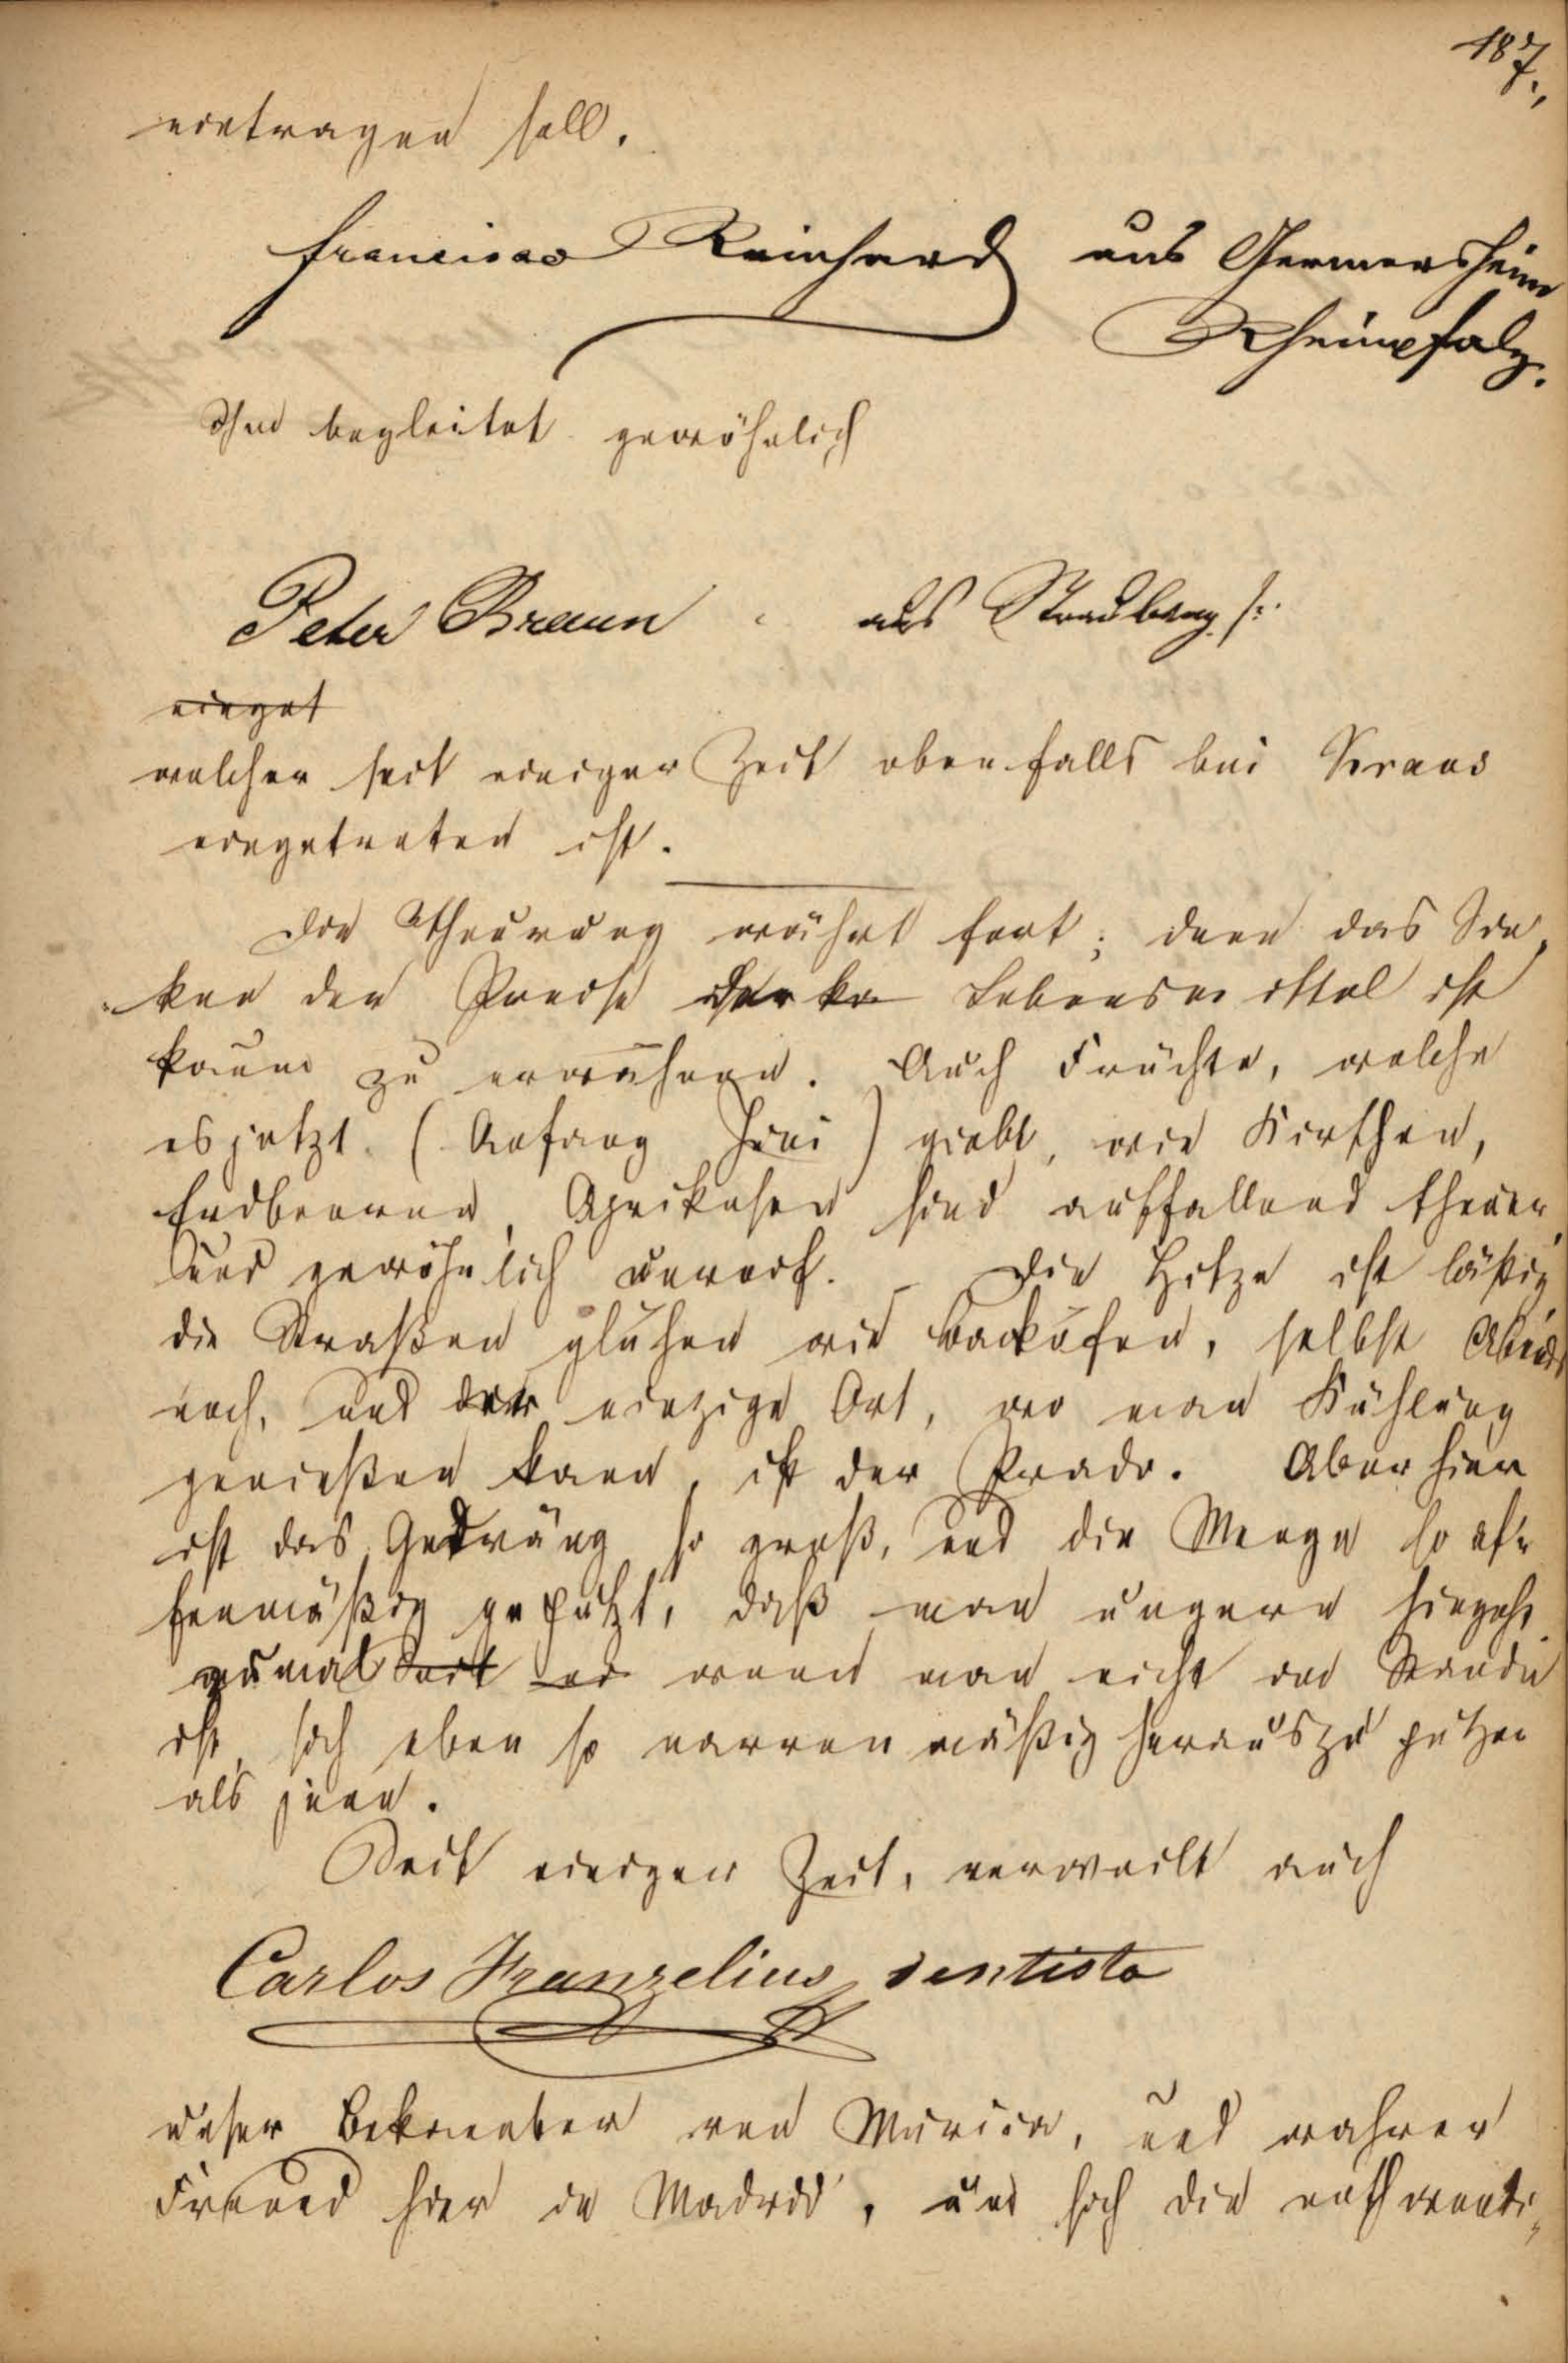 187.,
eintragen soll.
Francisco Reinhard aus Germersheim
Rheinpfalz.
Ihn begleitet gewöhnlich
Peter Braun aus Straubing
einget
welcher seit einiger Zeit ebenfalls bei Kraus
eingetreten ist.
Die Theurung währt fort; denn das Sin,
ken der Preise der Lebensmittel ist
kaum zu erwähnen. Auch Früchte, welche
es jetzt (Anfang Juni) giebt, wie Kirschen,
Erdbeeren, Aprikosen sind auffallend theuer,
und gewöhnlich unreif. – Die Hitze ist lästig
die Straßen glühen wie Backöfen, selbst Abends
noch, und der einzige Ort, wo man Kühlung
genießen kann, ist der Prado. Aber hier
ist das Gedräng so groß, und die Menge so af=
fenmäßig geputzt, daß man ungern hingeht
zumal dort wenn man nicht im Stande
ist, sich eben so narrenmäßig herauszuputzen
als jene.
Seit einiger Zeit, verweilt auch
Carlos Franzelius, dentista
unser Bekannter von Murcia, und wahrer
Freund hier in Madrid, um sich die nothwendi,